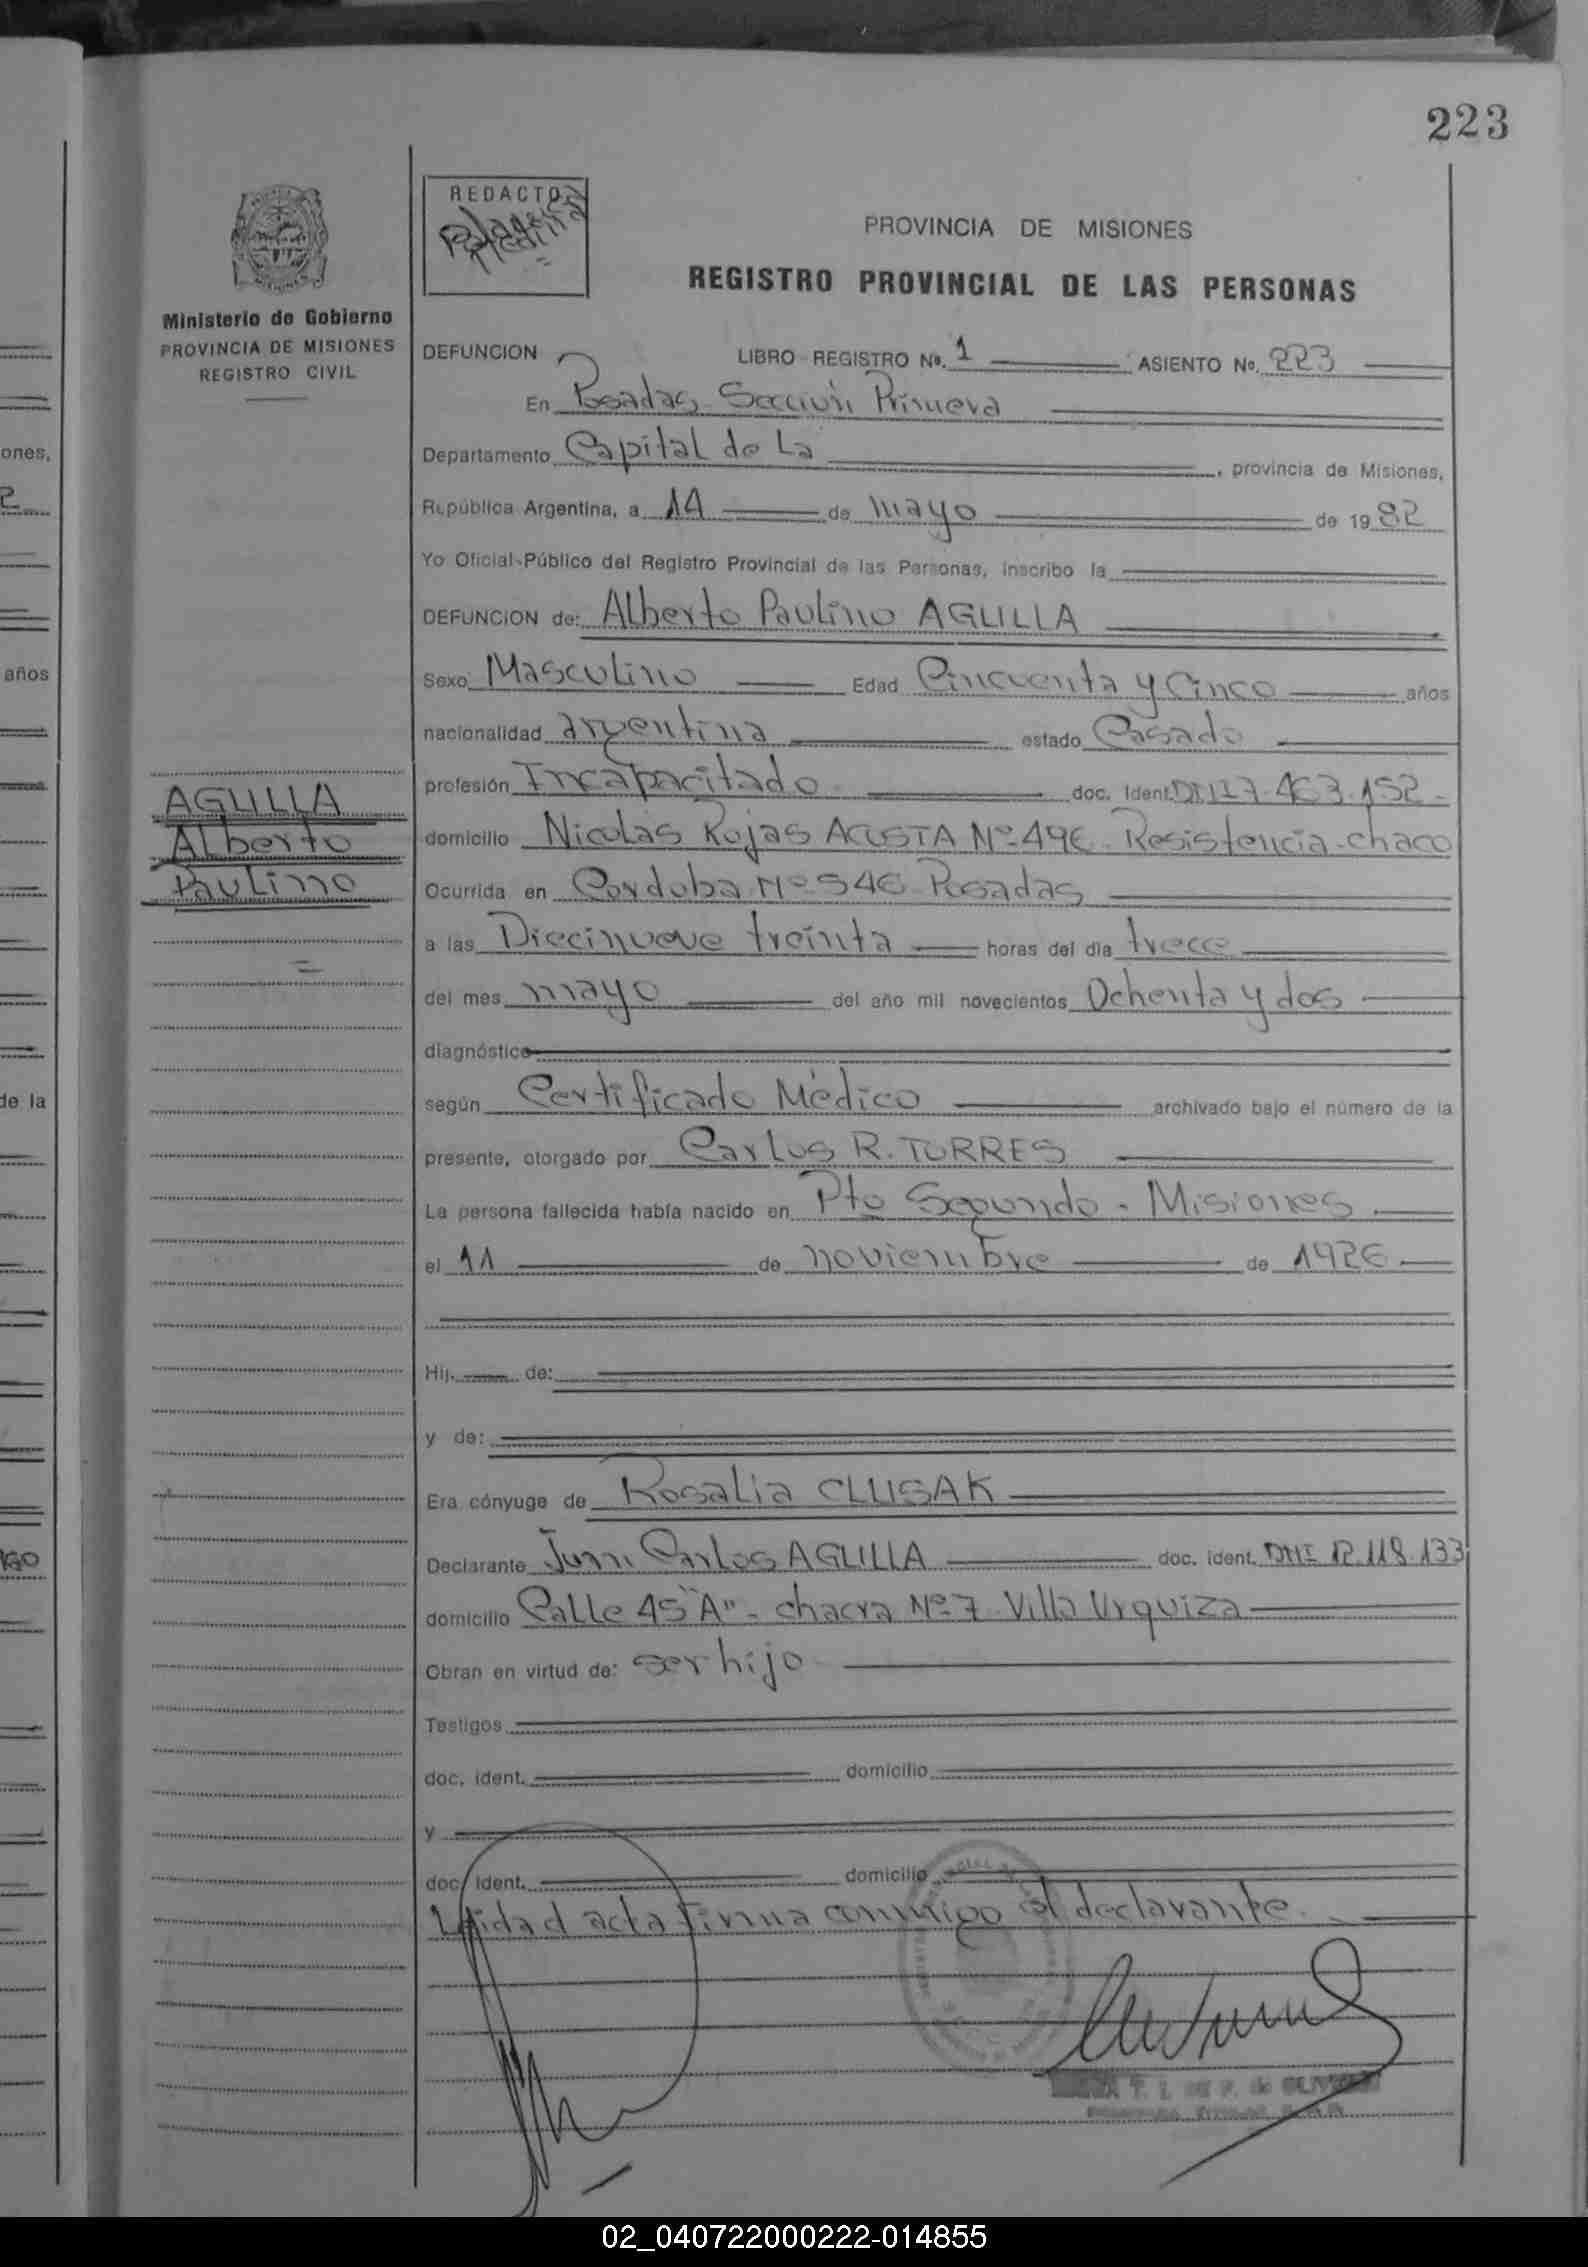 223
REDACTO
Medina
Ministerio de Gobierno
PROVINCIA DE MISIONES
REGISTRO CIVIL
PROVINCIA DE MISIONES
REGISTRO PROVINCIAL DE LAS PERSONAS
DEFUNCION LIBRO REGISTRO No. 1 ASIENTO No. 223
En Posadas Sección Primera
Departamento Capital de La , provincia de Misiones,
República Argentina, a 14 de mayo de 1982
Yo Oficial Público del Registro Provincial de las Personas, inscribo la
DEFUNCION de: Alberto Paulino AGUILLA
Sexo Masculino Edad Cincuenta y Cinco años
nacionalidad argentina estado Casado
profesión Incapacitado doc. Ident. DNI 7.463.152-
AGUILLA
Alberto
Paulino
domicilio Nicolás Rojas ACOSTA Nº 496. Resistencia-chaco
Ocurrida en Cordoba Nº 546 Posadas
a las Diecinueve treinta horas del día trece
del mes mayo del año mil novecientos Ochenta y dos
diagnóstico
según Certificado Médico archivado bajo el número de la
presente, otorgado por Carlos R. TORRES
La persona fallecida había nacido en Pto Segundo - Misiones
el 11 de noviembre de 1926
Hij. de:
y de:
Era cónyuge de Rosalia CLUSAK
Declarante Juan Carlos AGUILLA doc. ident. DNI 12.118.133
domicilio Calle 45 "A" - chacra Nº 7 Villa Urquiza
Obran en virtud de: ser hijo
Testigos
doc. ident. domicilio
y
doc. ident. domicilio
Leida el acta firma conmigo el declarante.
T. I. DE F. de
ones,
2
años
de la
02_040722000222-014855